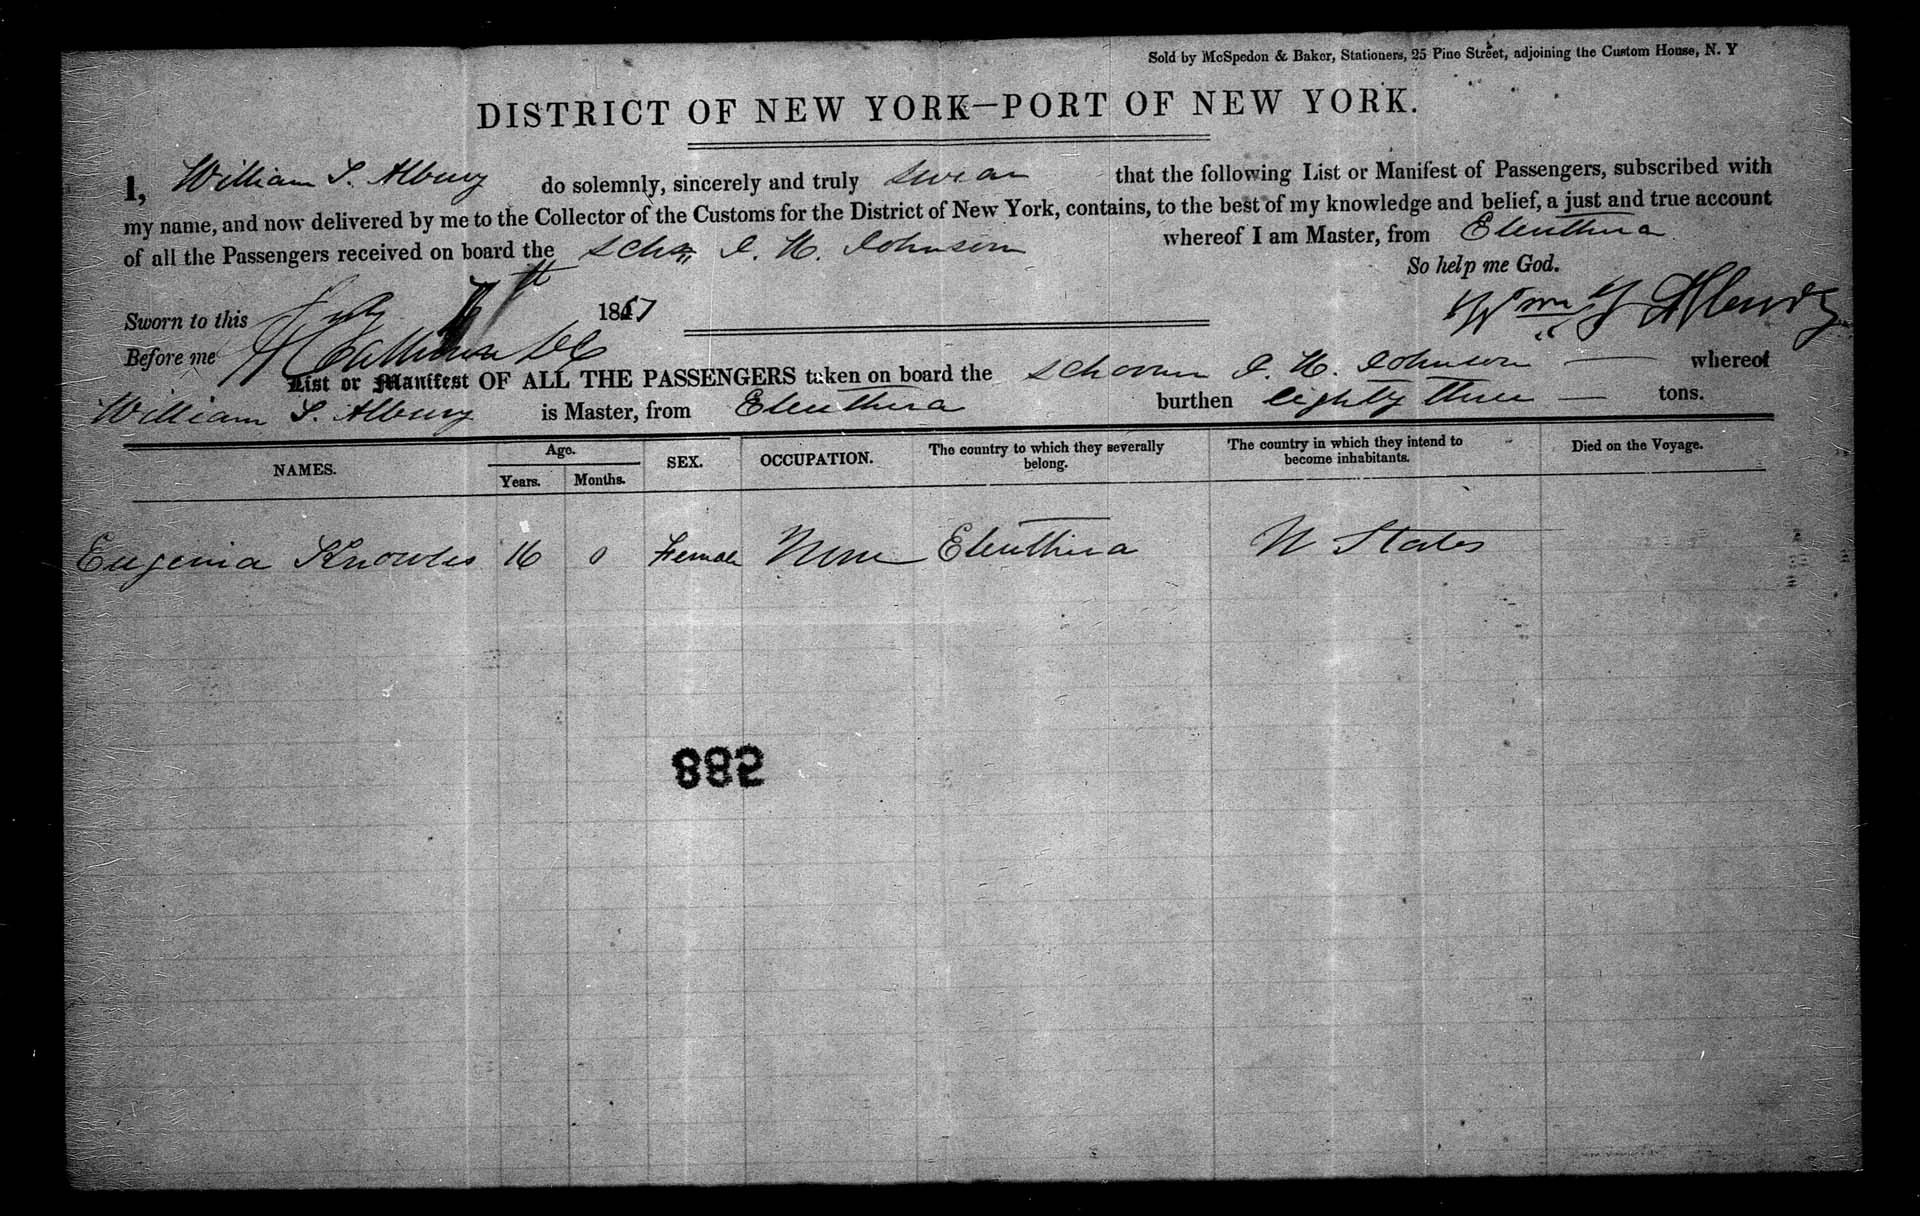 Sold by McSpedon & Baker, Stationers, 25 Pine Street, adjoining the Custom House, N. Y
DISTRICT OF NEW YORK—PORT OF NEW YORK.
I, William S. Albury do solemnly, sincerely and truly swear that the following List or Manifest of Passengers, subscribed with
my name, and now delivered by me to the Collector of the Customs for the District of New York, contains, to the best of my knowledge and belief, a just and true account
of all the Passengers received on board the Schr. J. H. Johnson whereof I am Master, from Eleuthera
So help me God.
Sworn to this July 7th 1857 Wm Albury
Before me
List or Manifest OF ALL THE PASSENGERS taken on board the Schooner J. H. Johnson — whereof
William S. Albury is Master, from Eleuthera burthen Eighty three — tons.
NAMES. Age. Years. Months. SEX. OCCUPATION. The country to which they severally belong. The country in which they intend to become inhabitants. Died on the Voyage.
Eugenia Knowles 16 0 Female None Eleuthera U States
882